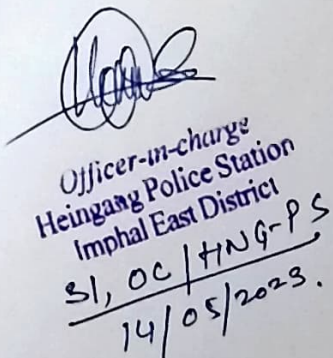 Officer-in-charge
Heingang Police Station
Imphal East District
SI, OC/HNG-PS
14/05/2023.